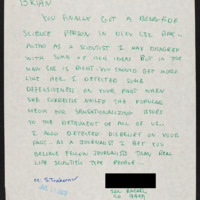 BRIAN
YOU FINALLY GOT A BONA-FIDE
SCIENCE PERSON IN
ALTHO AS A SCIENTIST I MAY DISAGREE
WITH SOME OF HER IDEAS BUT IN THE
MAIN SHE IS RIGHT. YOU SHOULD GET MORE
LIKE HER. I DETECTED SOME
DEFENSIVENESS ON YOUR PART WHEN
SHE CORRECTLY THE POPULAR
MEDIA FOR SENSATIONALIZING
TO THE DETRIMENT OF ALL OF US.
I ALSO DETECTED DISBELIEF ON YOUR
PART. AS A JOURNALIST I BET YOU
BELIEVE FELLOW JOURNALISTS THAN REAL
LIFE SCIENTIST TYPE PEOPLE.
cc
SAN RAFAEL
CA